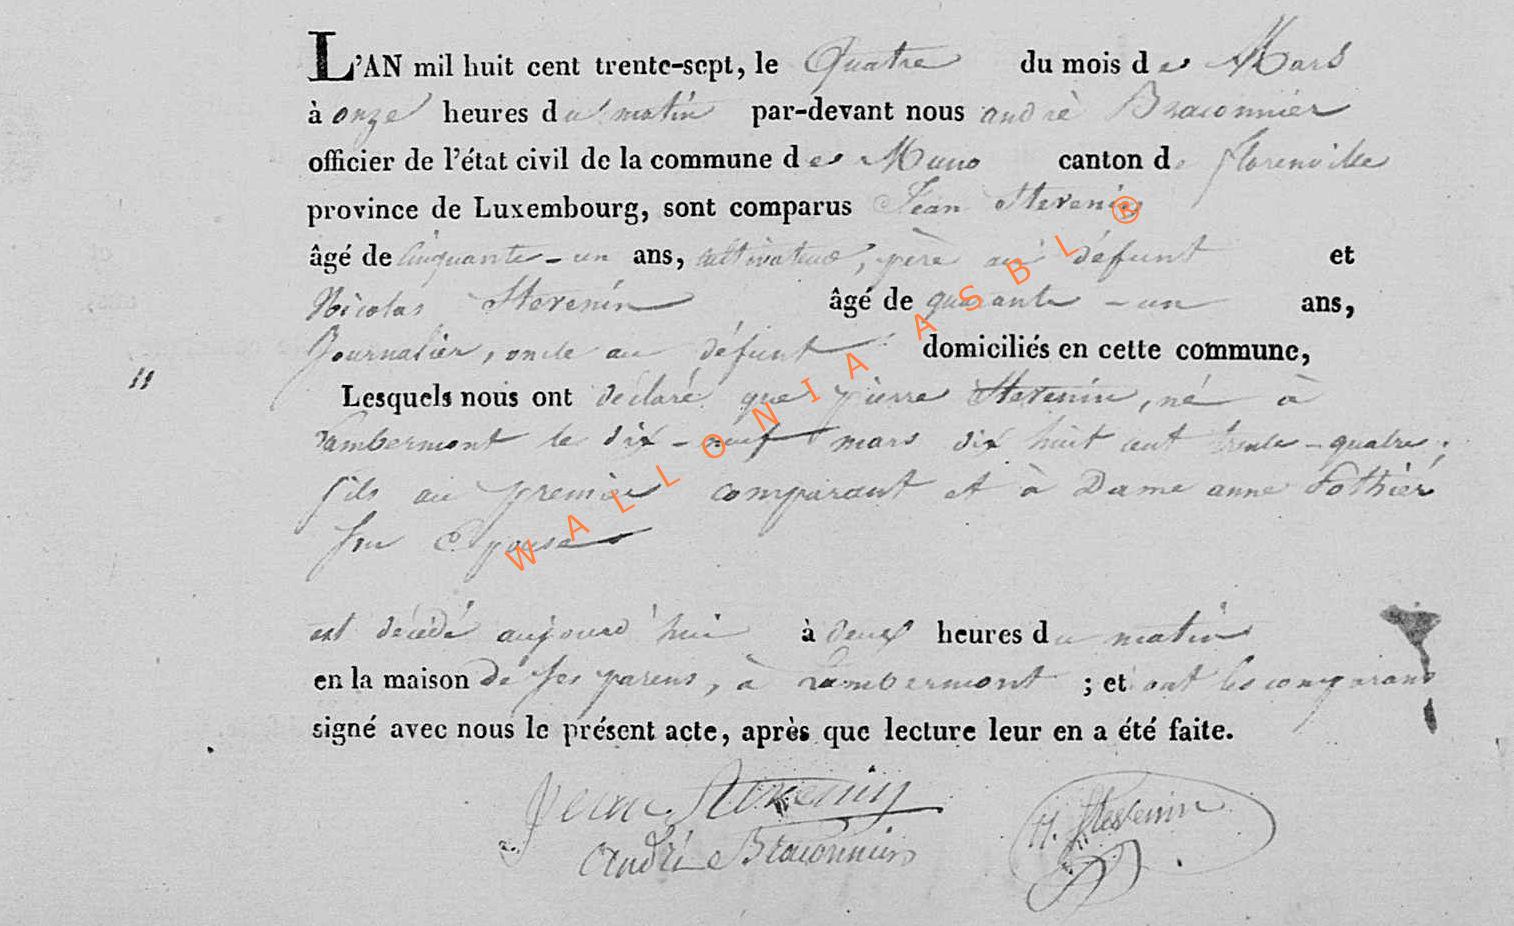 L'AN mil huit cent trente-sept, le Quatre du mois de Mars
à onze heures du matin par-devant nous andré Braconnier
officier de l'état civil de la commune de Muno canton de florenville
province de Luxembourg, sont comparus Jean Stevenin
âgé de Cinquante-un ans, cultivateur, père au défunt et
Nicolas Stevenin âgé de quarante-un ans,
Journalier, oncle au défunt domiciliés en cette commune,
11
Lesquels nous ont déclaré que pierre Stevenin, né à
Lambermont le dix-neuf mars dix huit cent trente-quatre,
fils au premier comparant et à Dame anne Pothier
son Epouse
est décédé aujourd'hui à deux heures du matin
en la maison de ses parens, à Lambermont ; et ont les comparans
signé avec nous le présent acte, après que lecture leur en a été faite.
Jean Stevenin
H. Stevenin
André Braconnier
WALLONIA ASBL ®